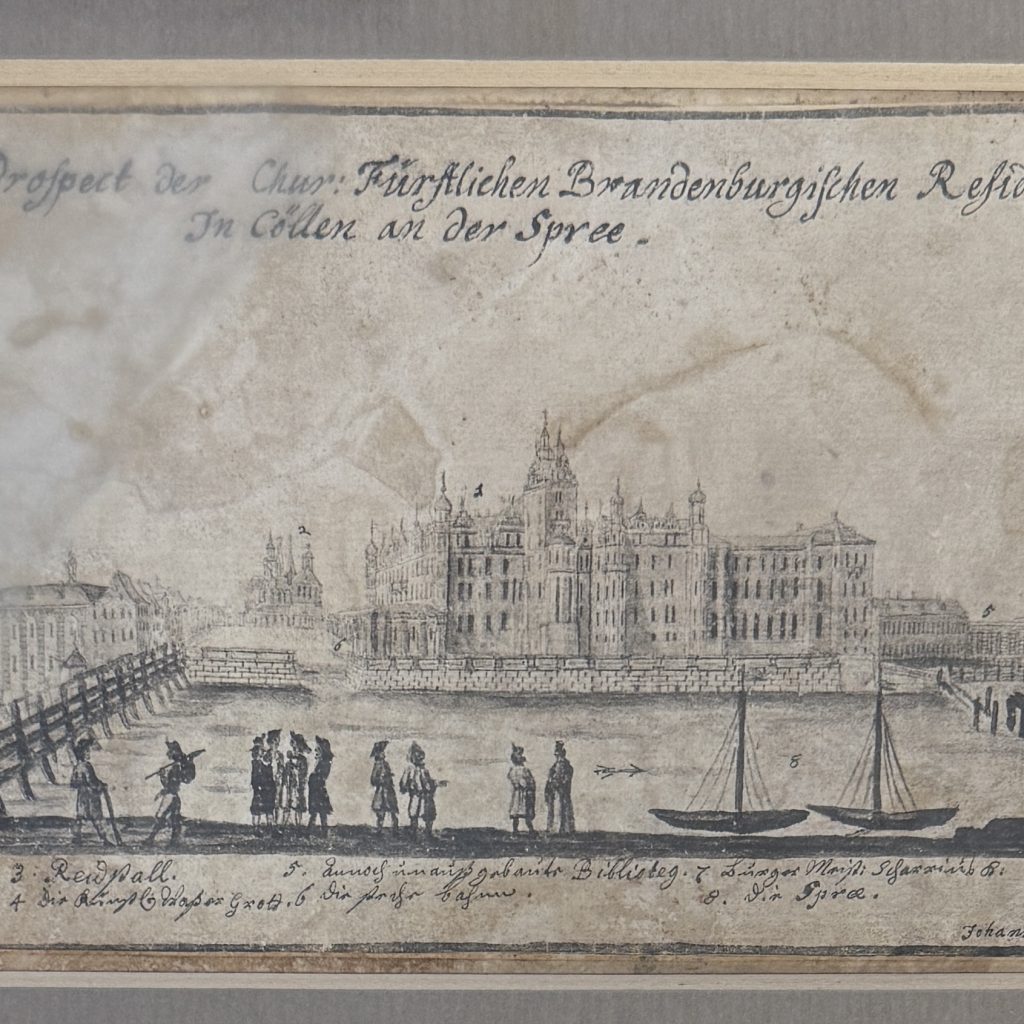 Prospect der Chur: Fürstlichen Brandenburgischen Resid
In Cöllen an der Spree.
1
2
5
6
8
3: Reidstall.
5. annoch unauß gebaute Biblioteg. 7 Burger Meist: Scharrius
4 die Kunst
6 die bahn.
8. die Spree.
Johan